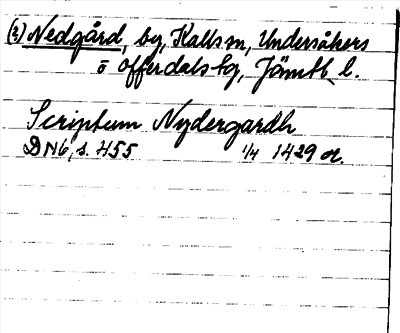 (2) Nedgård, by, Kalls sn, Undersåkers
o Offerdals tg, Jämtl. l.
Scriptum Nydergardh
DN 6, s. 455 1/4 1429 or.